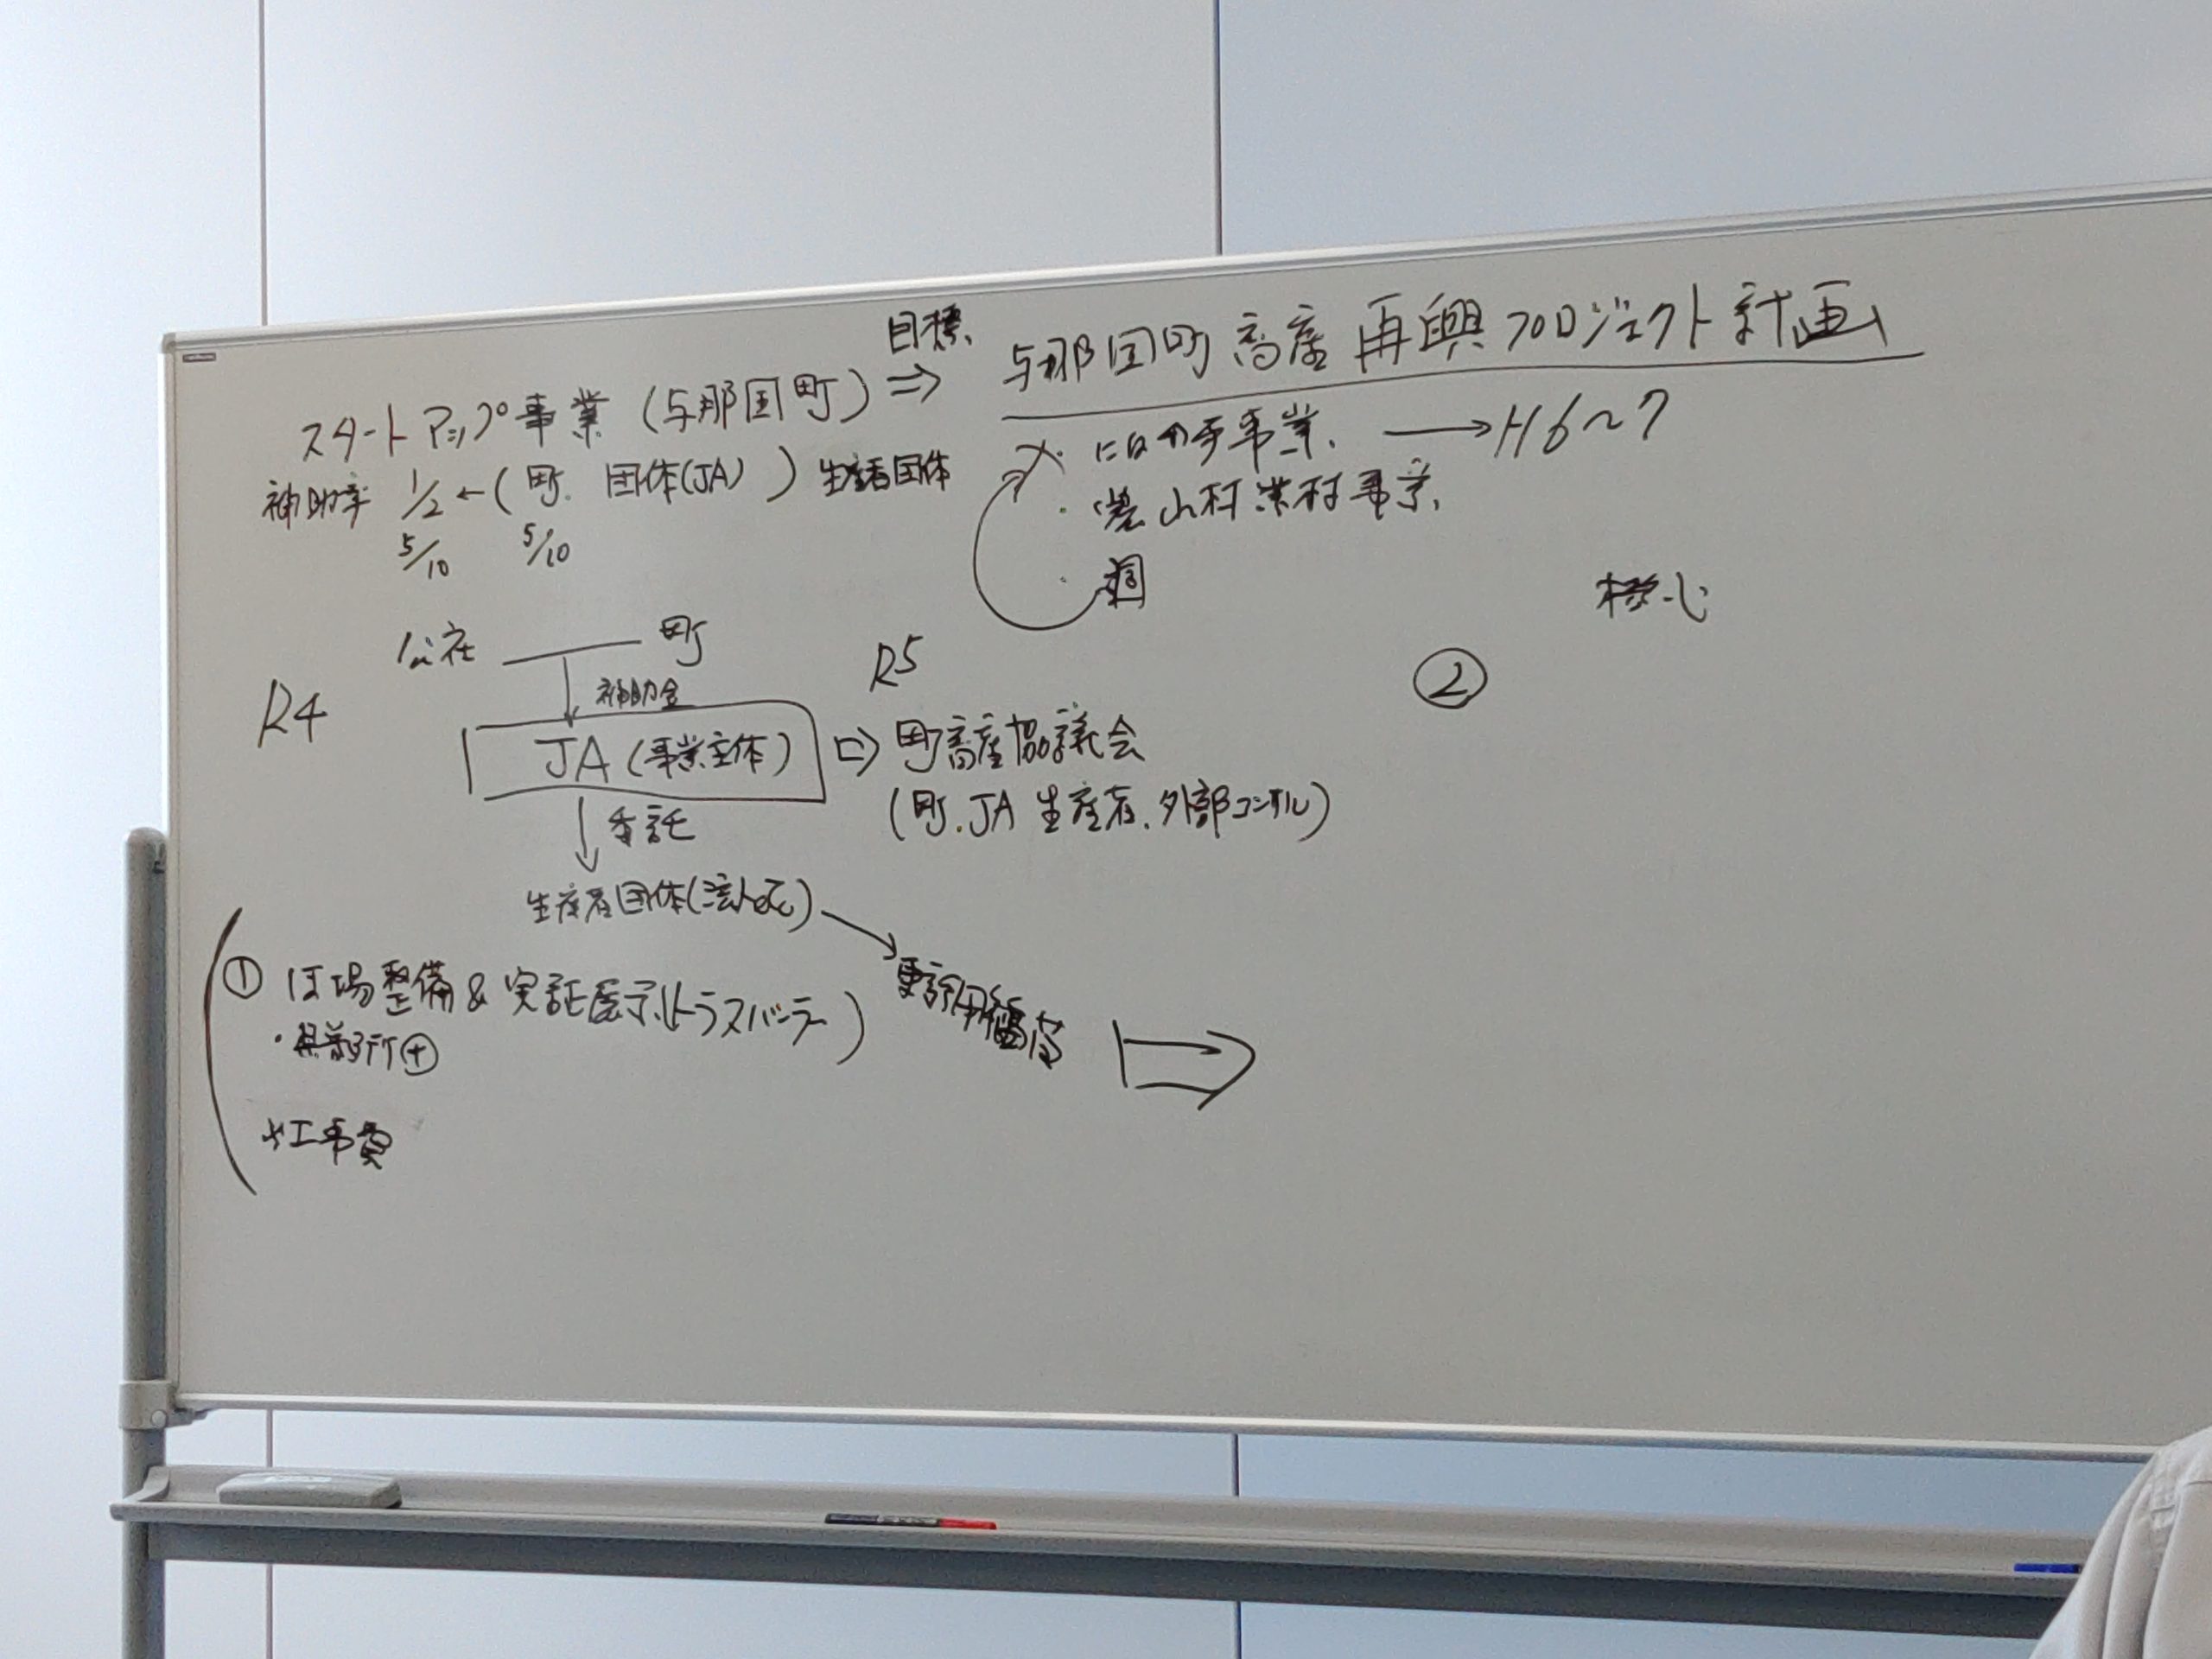 目標
スタートアップ事業(与那国町) ⇒ 与那国町畜産再興プロジェクト計画
補助率 1/2 ←(町. 団体(JA)) 生産者団体
5/10 5/10
事業. → H6~7
・農山村漁村事業.
核心
公社 町
R4
補助金
R5
②
JA(事業主体) ⇨ 町畜産協議会
(町.JA 生産者.外部コンサル)
↓委託
生産者団体(法人etc)
① ほ場整備&実証展示(トラスバーラー)
工事費